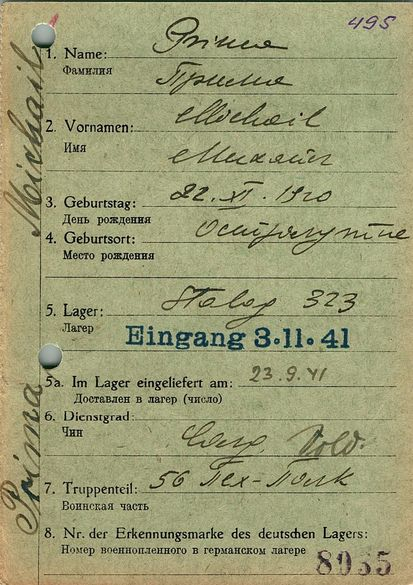 495
1. Name: Prima
Фамилия Прима
2. Vornamen: Michail
Имя Михаил
3. Geburtstag: 22. XI. 1920
День рождения
4. Geburtsort:
Место рождения
5. Lager: Stalag 323
Лагерь
Eingang 3.11.41
5a. Im Lager eingeliefert am: 23.9.41
Доставлен в лагер (число)
6. Dienstgrad:
Чин Sold.
7. Truppenteil: 56 Пех-Полк
Воинская часть
8. Nr. der Erkennungsmarke des deutschen Lagers:
Номер военнопленного в германском лагере
8965
Prima Michail